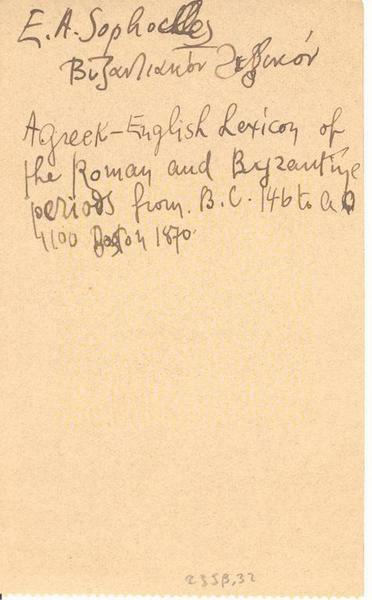 E. A. Sophocles
Βυζαντιακόν Λεξικόν
A Greek-English Lexicon of
the Roman and Byzantine
periods from. B.C. 146 to a D
1100 Boston 1870